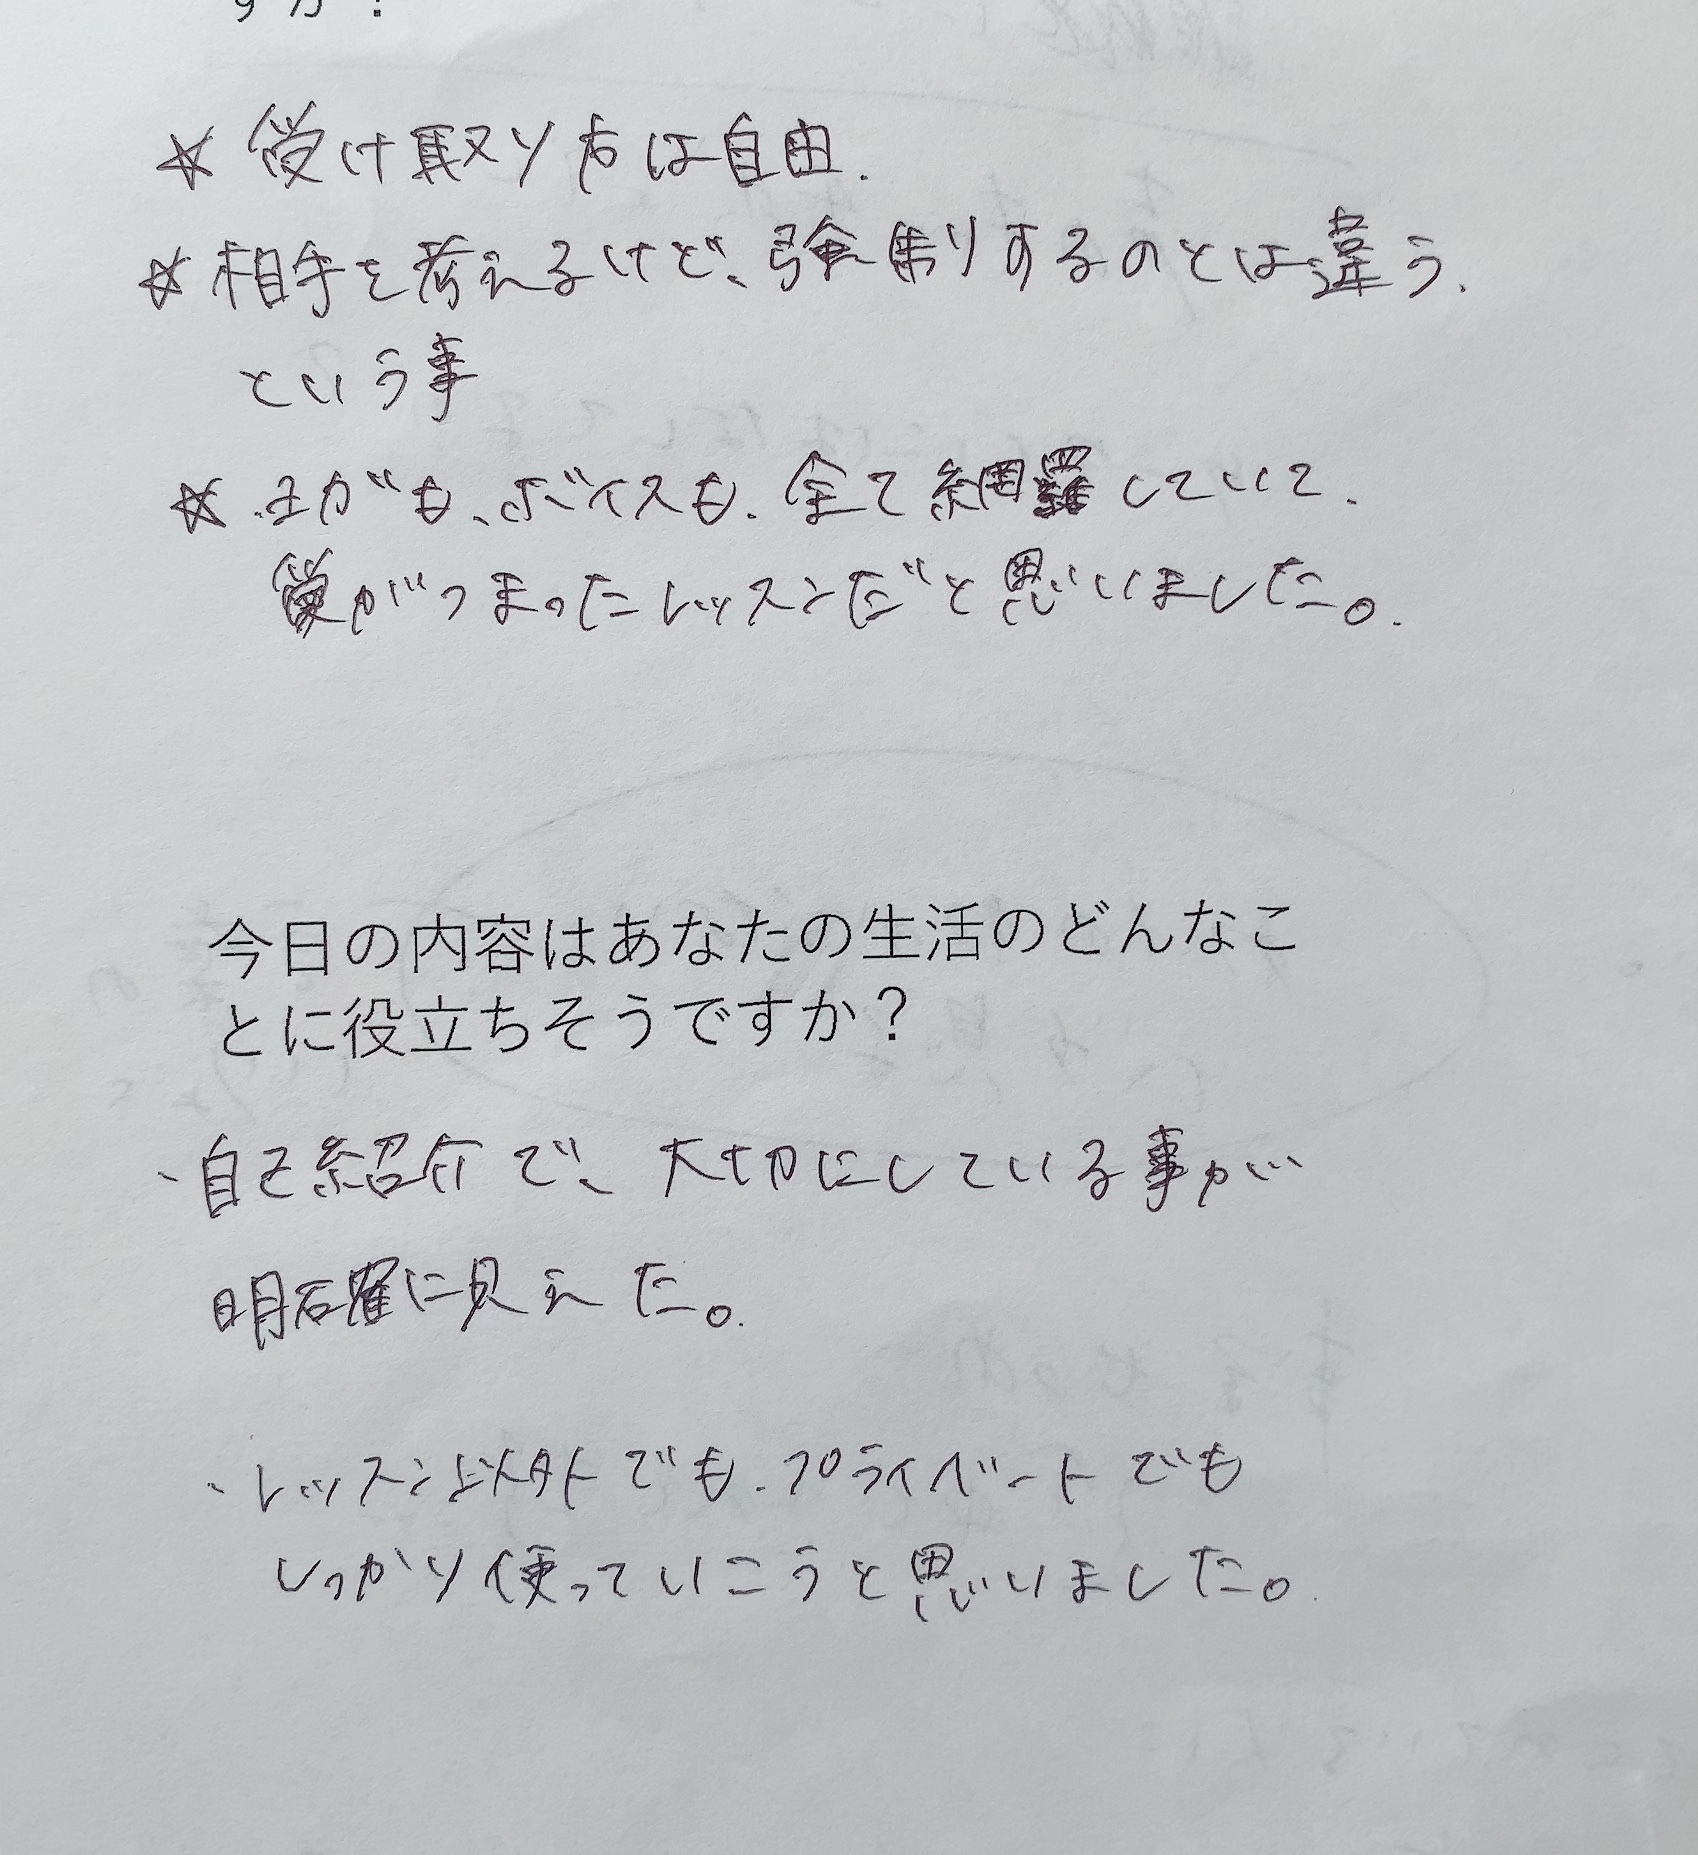 すか？
☆ 受け取り方は自由.
☆ 相手を考えるけど、強制するのとは違う.
という事
☆ ヨガも、ボイスも、全て網羅していて、
愛がつまったレッスンだと思いました。
今日の内容はあなたの生活のどんなこ
とに役立ちそうですか？
・自己紹介で、大切にしている事が
明確に見えた。
・レッスン以外でも、プライベートでも
しっかり使っていこうと思いました。